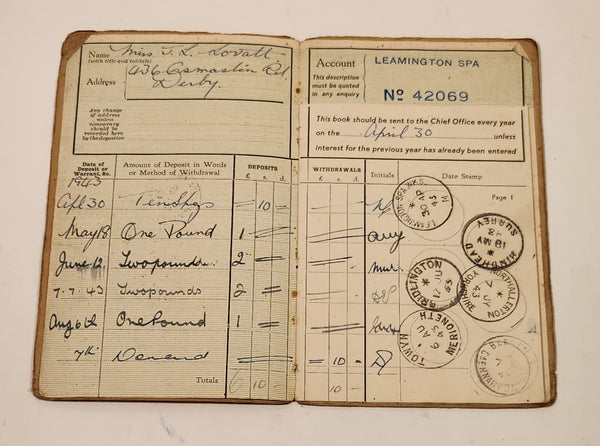 Name
(with title and initials)
Miss J. L. Lovatt
436 Osmaston Rd
Address
Derby.
Any change
of address
unless
temporary
should be
recorded here
by the depositor
Date of
Deposit or
Warrant, &c.
Amount of Deposit in Words
or Method of Withdrawal
DEPOSITS
£ s. d.
1943
Apl 30 Ten Shgs 10
May 18 One Pound 1
June 12 Two pounds 2
7.7.43 Two pounds 2
Aug 6th One Pound 1
7th Demand
Totals 6 10
Account
This description
must be quoted
in any enquiry
LEAMINGTON SPA
No 42069
This book should be sent to the Chief Office every year
on the April 30 unless
interest for the previous year has already been entered
WITHDRAWALS
£ s. d.
Initials
Date Stamp
Page 1
LEAMINGTON SPA
30 AP
43
HINDHEAD
18 MY
43
SURREY
BRIDLINGTON
12 JU
43
NORTHALLERTON
7 JY
43
YORKSHIRE
TOWYN
6 AU
43
MERIONETH
10
10